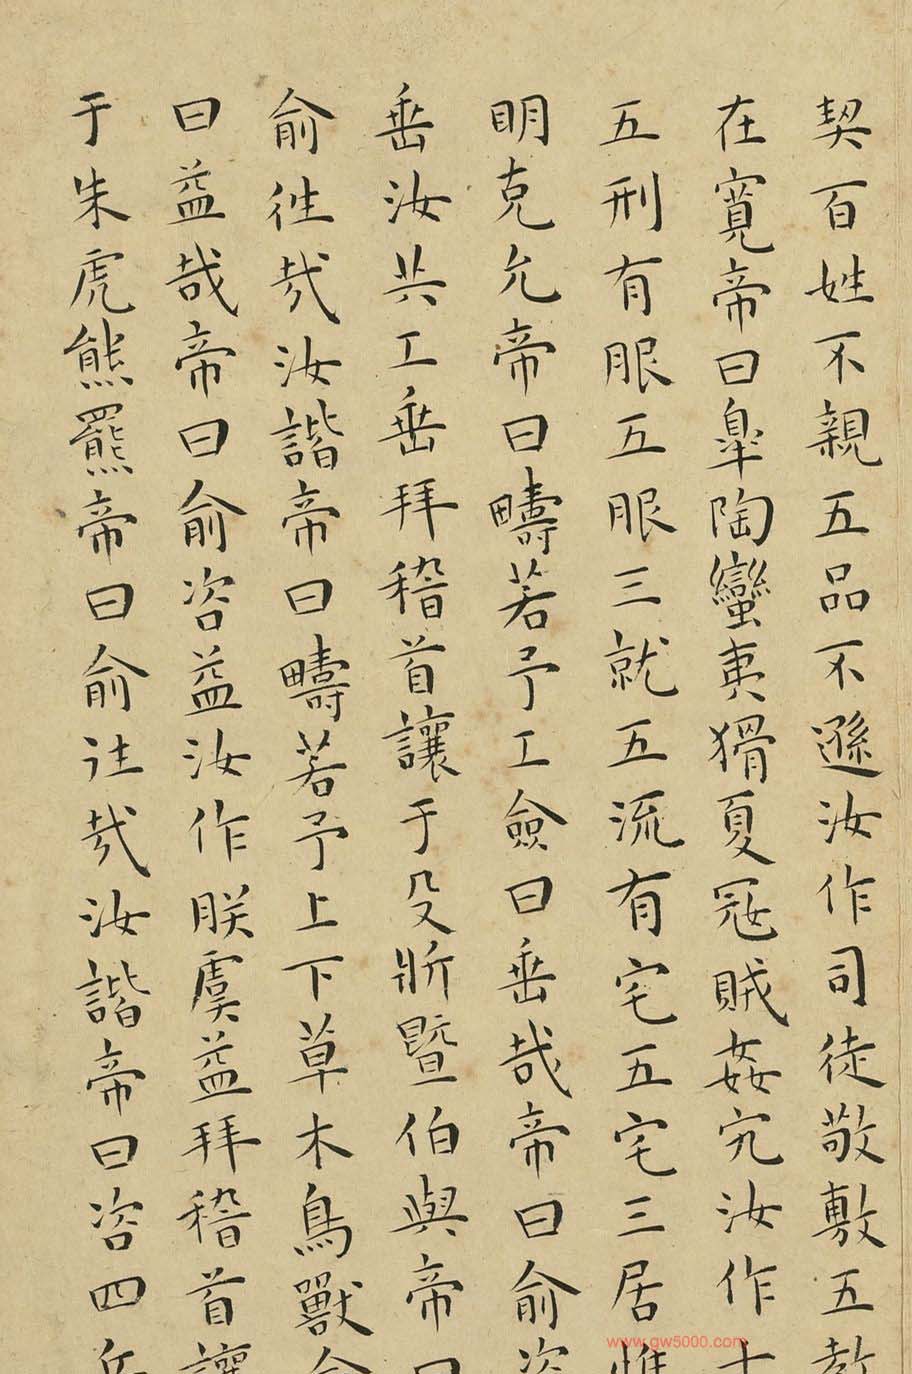 契百姓不親五品不遜汝作司徒敬敷五教
在寬帝曰皐陶蠻夷猾夏冦賊姦宄汝作士
五刑有服五服三就五流有宅五宅三居惟
明克允帝曰疇若予工僉曰垂哉帝曰俞咨
垂汝共工垂拜稽首讓于殳斨暨伯與帝曰
俞徃哉汝諧帝曰疇若予上下草木鳥獸僉
曰益哉帝曰俞咨益汝作朕虞益拜稽首讓
于朱虎熊羆帝曰俞往哉汝諧帝曰咨四岳
www.gw5000.com